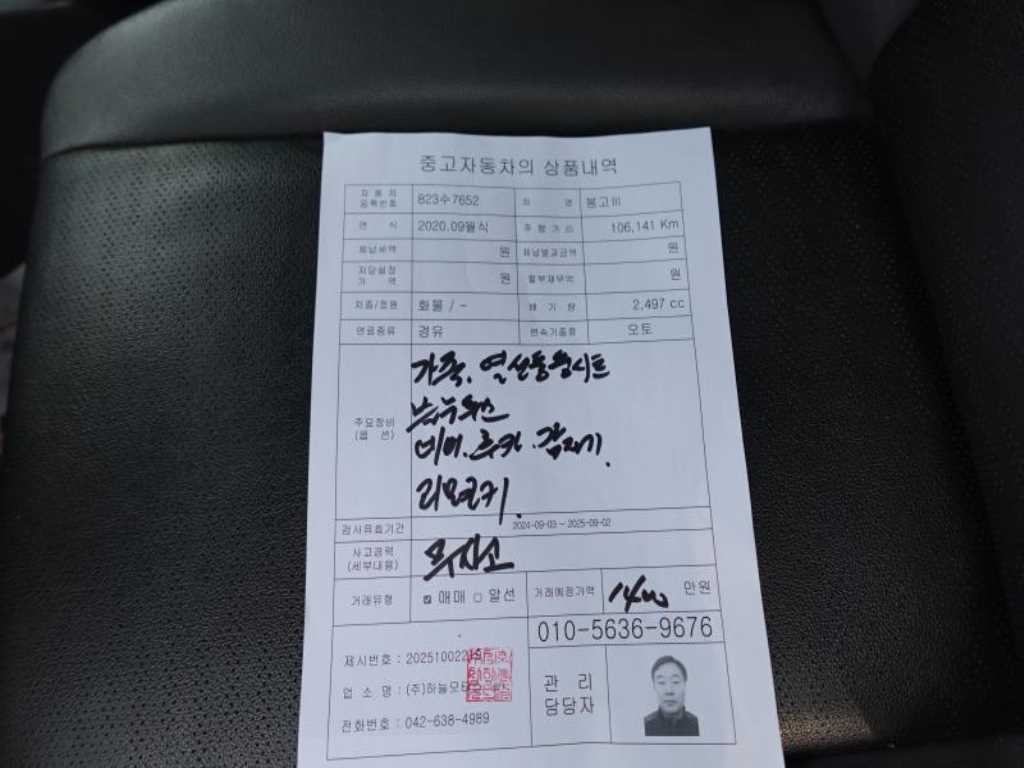 중고자동차의 상품내역
자 동 차 등록번호 823수7652 차 명 봉고III
연 식 2020.09월식 주행거리 106,141 Km
체납세액 원 체납범교금액 원
저당설정 가 액 원 할부채무액 원
차종/정원 화물 / - 배 기 량 2,497 cc
연료종류 경유 변속기종류 오토
주요장비 (옵 션) 가죽. 열선통풍시트
네비.후카.감지기.
리모컨키.
검사유효기간 2024-09-03 ~ 2025-09-02
사고경력 (세부내용) 무사고
거래유형 ☑ 매매 □ 알선 거래예정가액 1400 만원
010-5636-9676
제시번호 : 202510022
업 소 명 : (주)하늘모터스
전화번호 : 042-638-4989
관 리 담당자